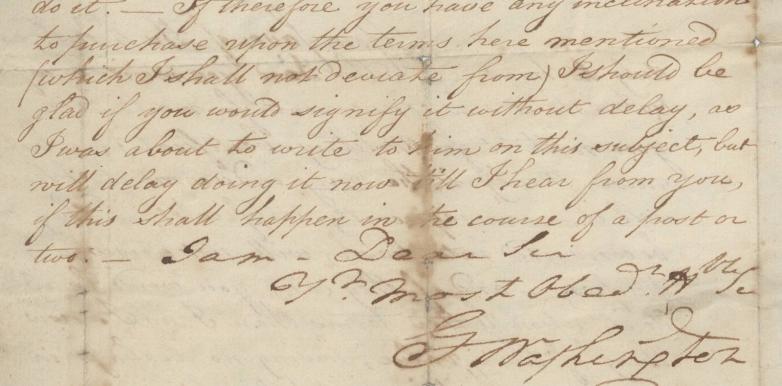 do it. — If therefore you have any inclination
to purchase upon the terms here mentioned
(which I shall not deviate from) I should be
glad if you would signify it without delay, as
I was about to write to him on this subject, but
will delay doing it now till I hear from you,
if this shall happen in the course of a post or
two. — I am — Dear Sir
Yr. Most Obedt. H
Go Washington